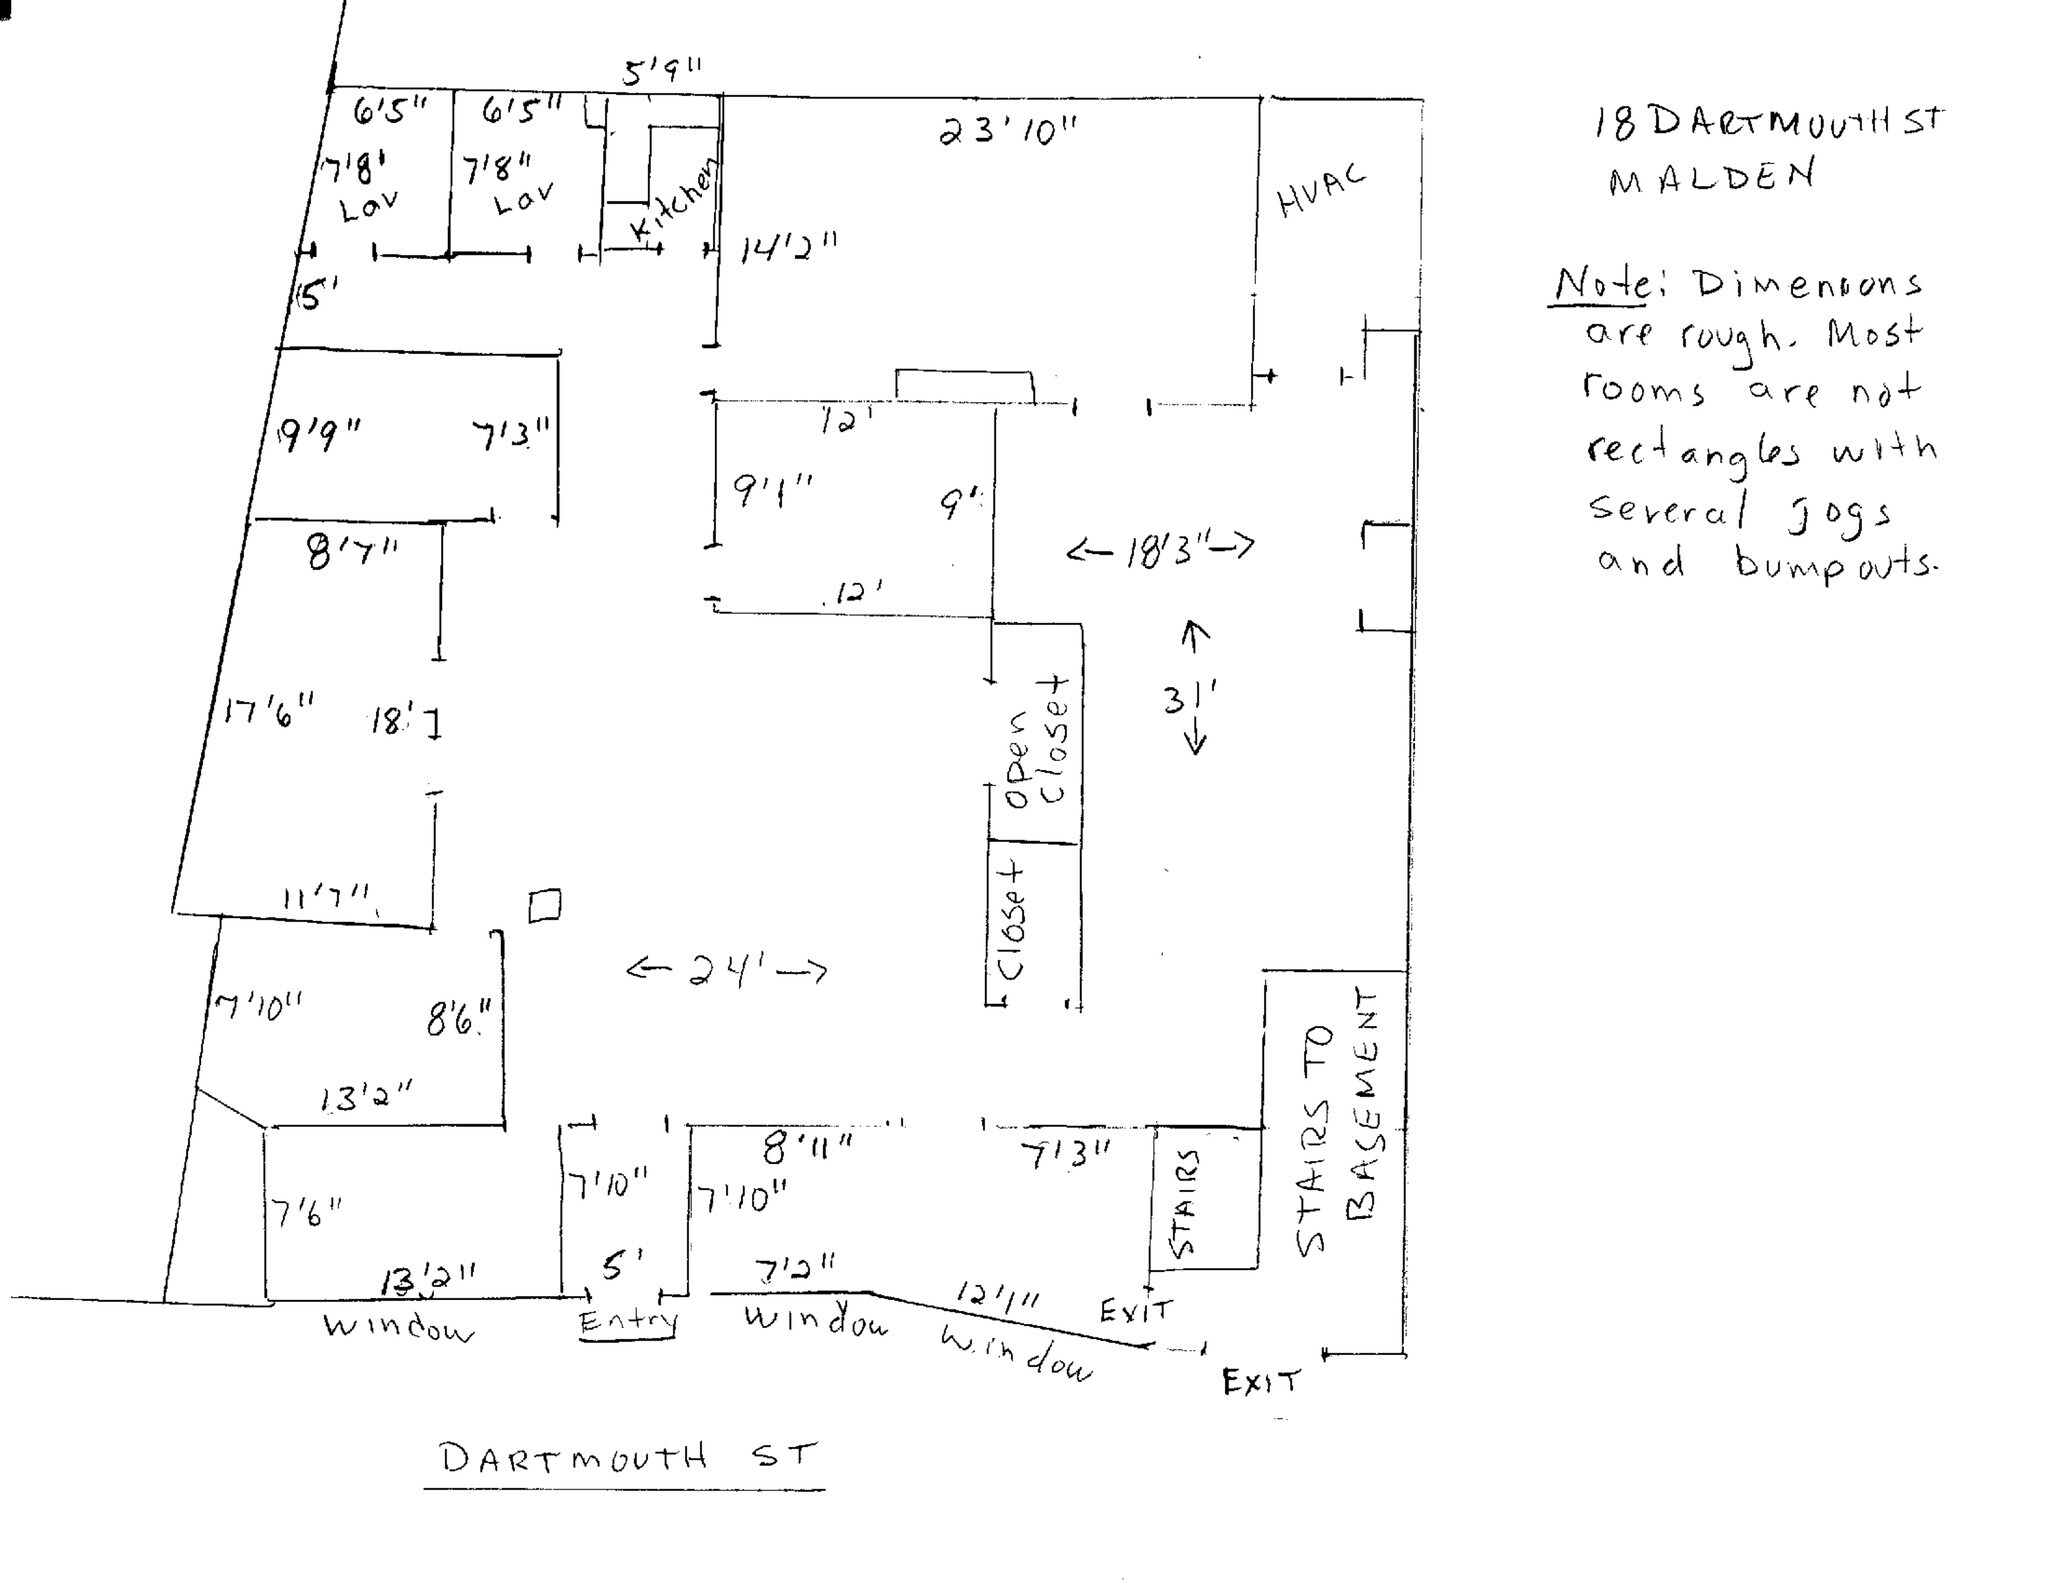 5'9"
6'5"
6'5"
23'10"
18 DARTMOUTH ST
MALDEN
7'8'
Lav
7'8"
Lav
Kitchen
14'2"
HVAC
5'
Note: Dimensions
are rough. Most
rooms are not
rectangles with
several jogs
and bumpouts.
9'9"
7'3"
12'
9'1"
9'
8'7"
18'3"
12'
17'6"
18'
31'
Open
Closet
11'7"
Closet
24'
7'10"
8'6"
13'2"
STAIRS TO
BASEMENT
8'11"
7'3"
7'6"
7'10"
7'10"
STAIRS
13'2"
5'
7'2"
12'1"
EXIT
Window
Entry
Window
Window
EXIT
DARTMOUTH ST